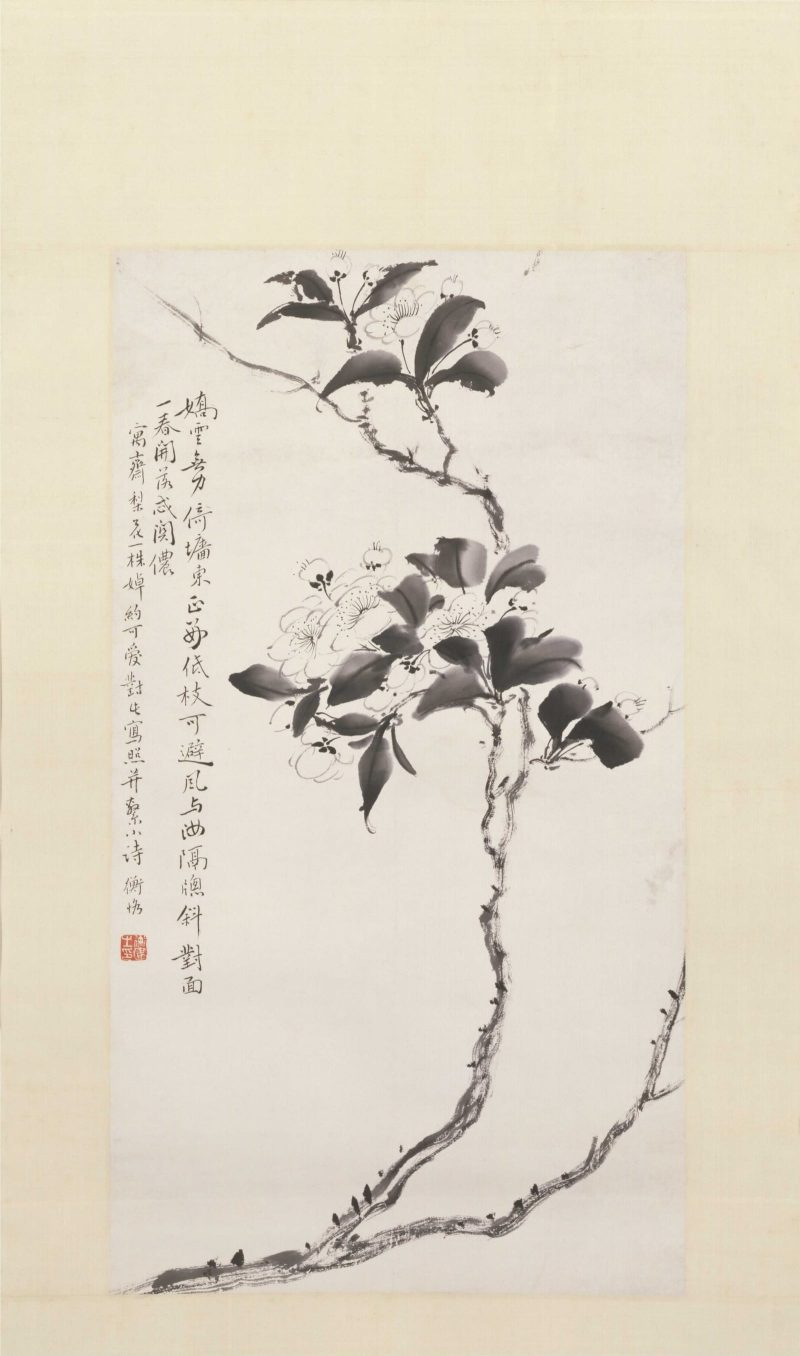 嬌雲無力倚墻東正好低枝可避風与汝隔牕斜對面
一春開落感關儂
寓齋梨花一株婥約可愛對此寫照并繫小詩 衡恪